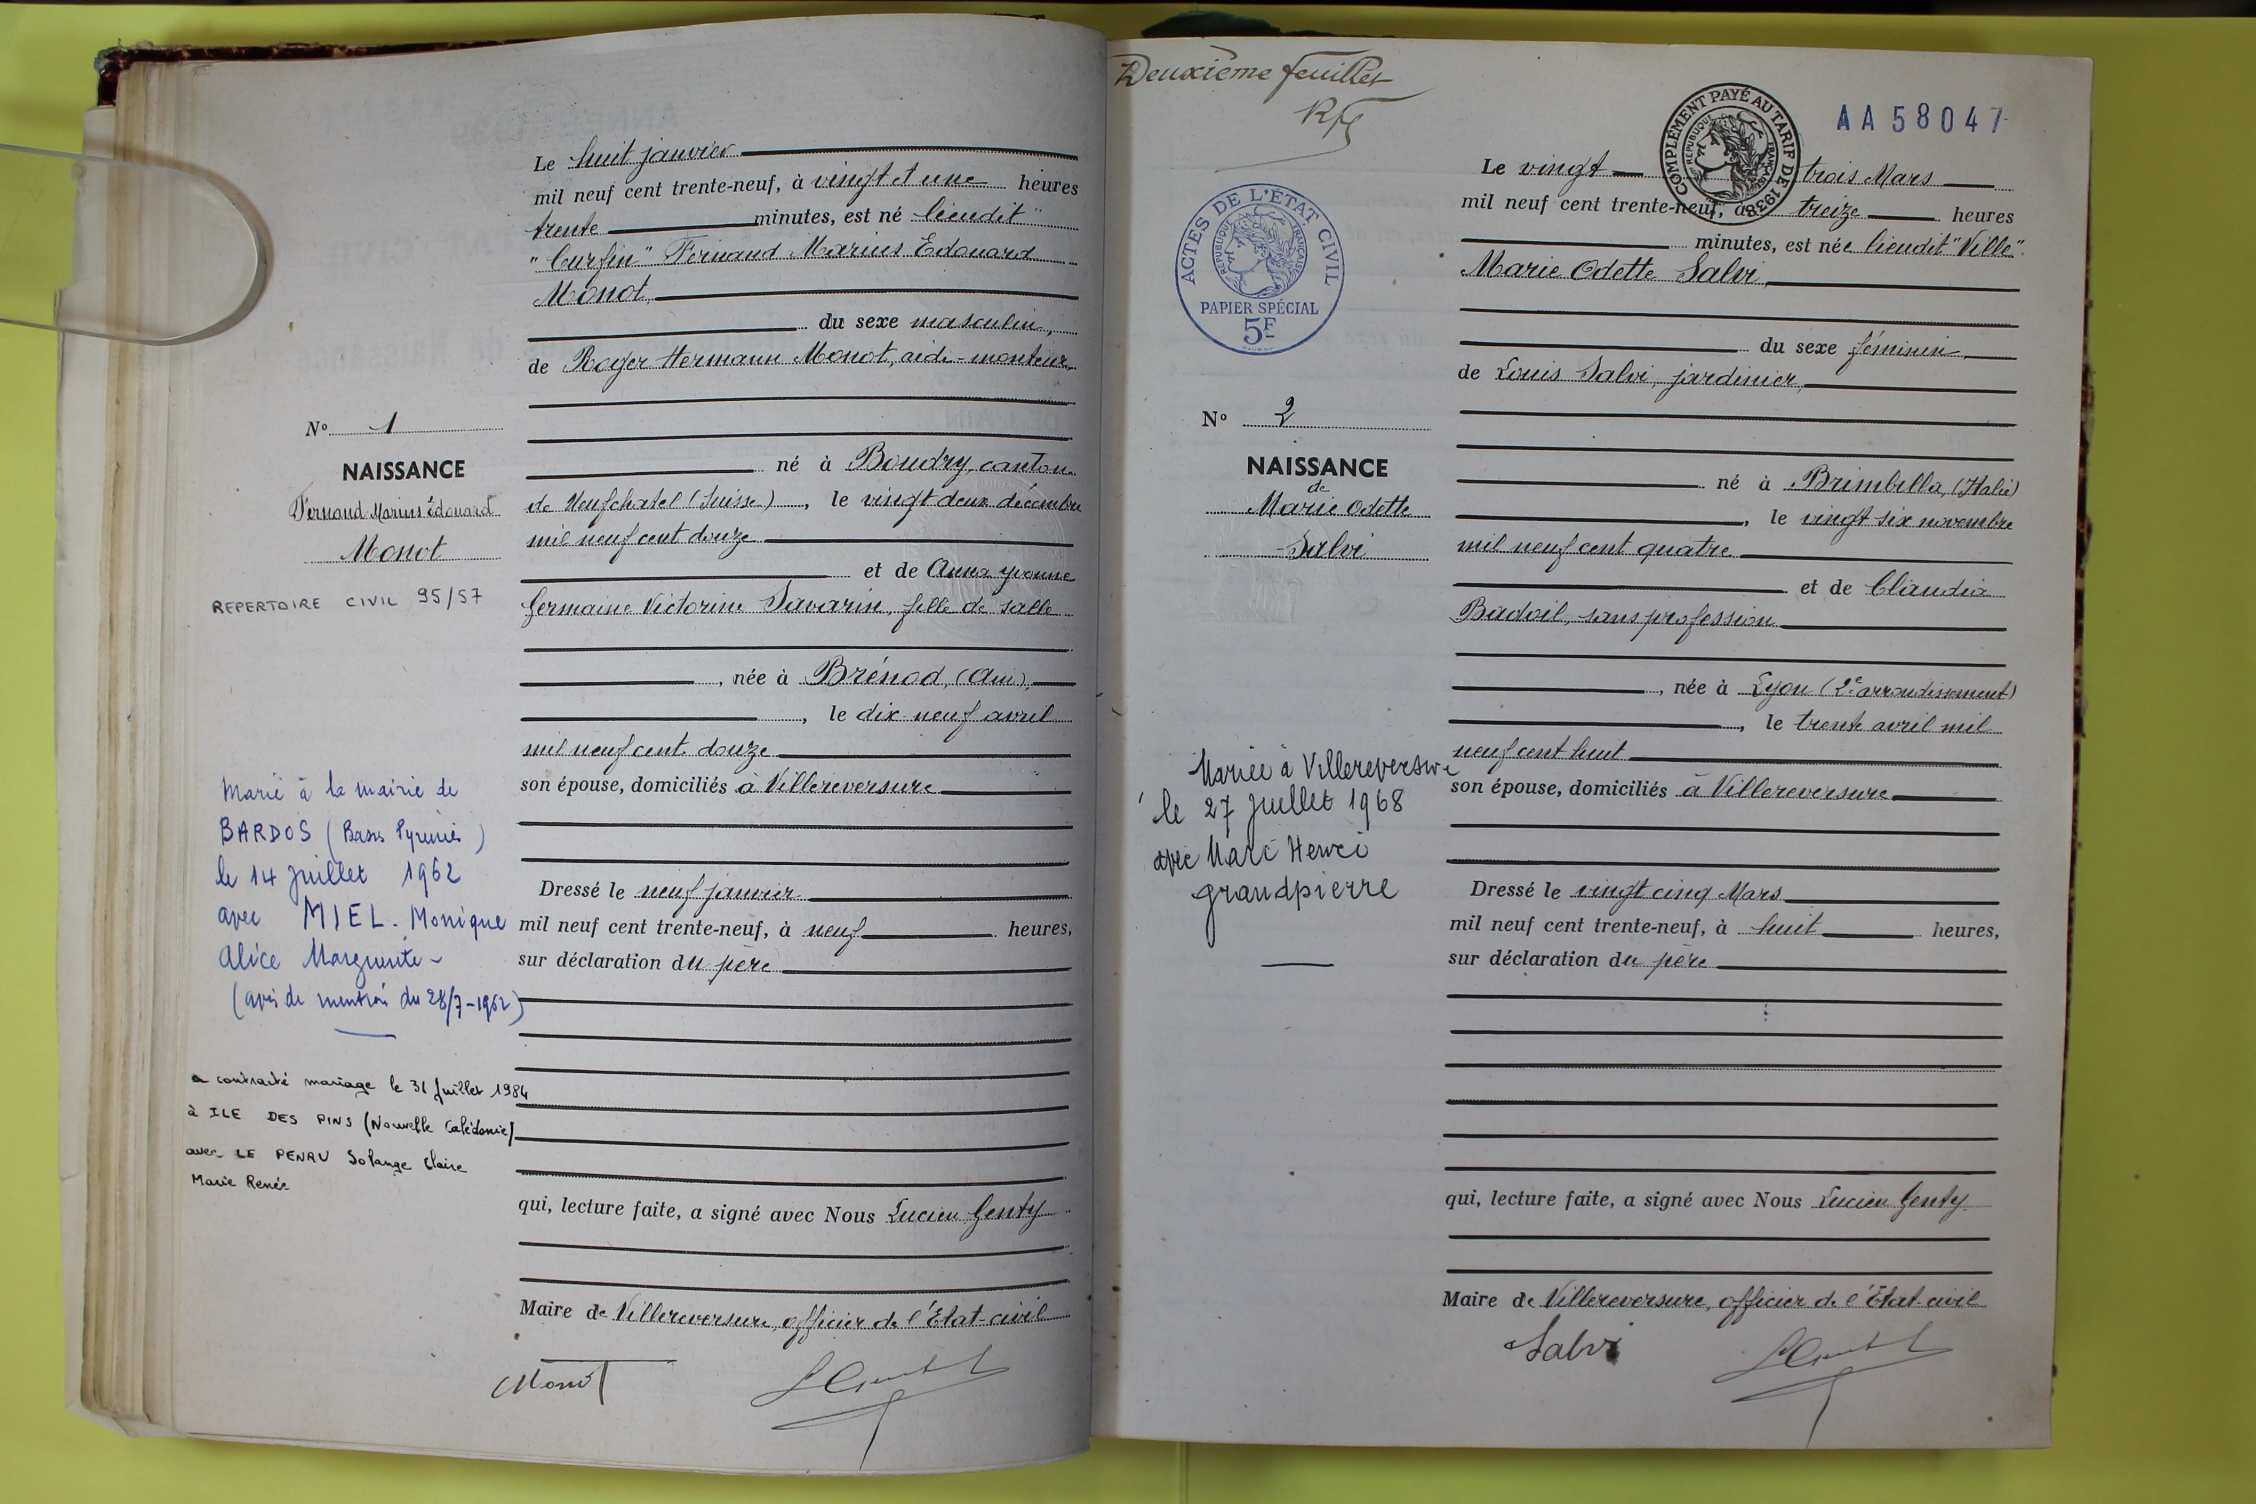 Le huit janvier
mil neuf cent trente-neuf, à vingt et une heures
trente minutes, est né lieudit
"Curfin" Fernand Marius Edouard
Monot,
du sexe masculin,
de Roger Hermann Monot, aide-monteur,
N° 1
NAISSANCE
Fernand Marius Édouard
Monot
REPERTOIRE CIVIL 95/57
né à Boudry, canton
de Neufchatel (Suisse), le vingt deux décembre
mil neuf cent douze
et de Anna Yvonne
Germaine Victorine Savarin, fille de salle
, née à Brénod, (Ain),
, le dix neuf avril
mil neuf cent douze
son épouse, domiciliés à Villereversure
Marié à la mairie de
BARDOS (Basses Pyrénées)
le 14 juillet 1962
avec MIEL. Monique
Alice Marguerite -
(avis de mention du 28/7-1962)
Dressé le neuf janvier
mil neuf cent trente-neuf, à neuf heures,
sur déclaration du père
a contracté mariage le 31 Juillet 1984
à ILE DES PINS (Nouvelle Calédonie)
avec LE PENRU Solange Claire
Marie Renée
qui, lecture faite, a signé avec Nous Lucien Genty
Maire de Villereversure, officier de l'Etat-civil
Monot
Deuxième feuillet
AA 58047
COMPLÉMENT PAYÉ AU TARIF DE 1938
RÉPUBLIQUE FRANÇAISE
ACTES DE L'ÉTAT CIVIL
RÉPUBLIQUE FRANÇAISE
PAPIER SPÉCIAL
5F
Le vingt trois Mars
mil neuf cent trente-neuf, à treize heures
minutes, est née lieudit "Ville".
Marie Odette Salvi,
du sexe féminin,
de Louis Salvi, jardinier,
N° 2
NAISSANCE
de
Marie Odette
Salvi
né à Brimbilla, (Italie)
, le vingt six novembre
mil neuf cent quatre
et de Claudia
Badoil, sans profession
, née à Lyon (2e arrondissement)
, le trente avril mil
neuf cent huit
son épouse, domiciliés à Villereversure
Mariée à Villereversure
le 27 juillet 1968
avec Marc Henri
grandpierre
Dressé le vingt cinq Mars
mil neuf cent trente-neuf, à huit heures,
sur déclaration du père
qui, lecture faite, a signé avec Nous Lucien Genty
Maire de Villereversure, officier de l'Etat-civil
Salvi